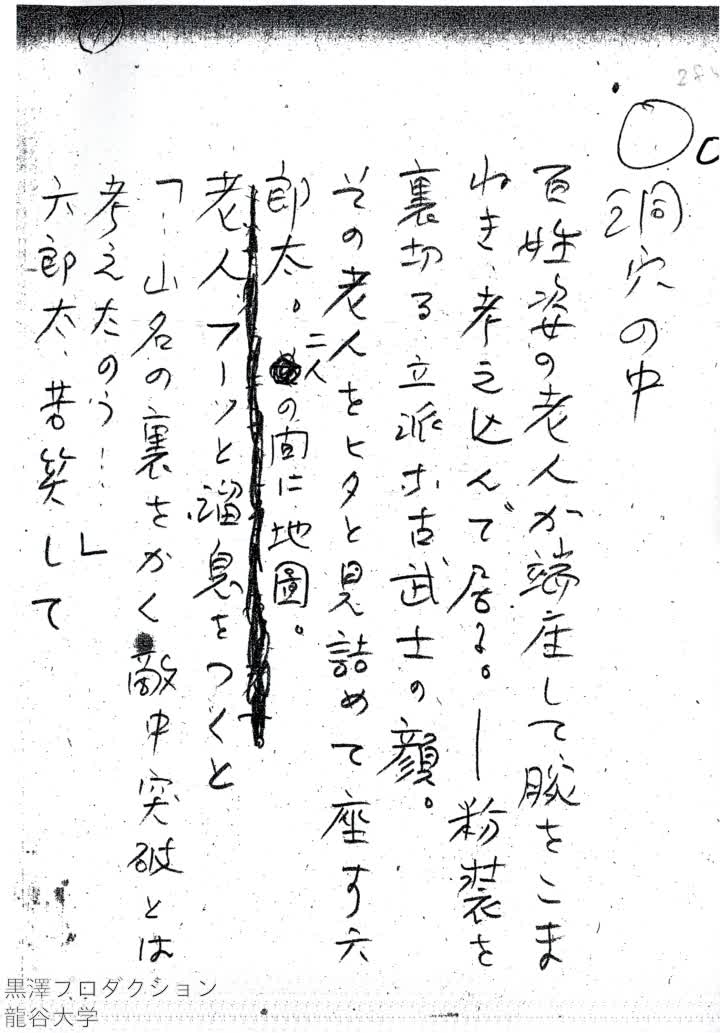 ○洞穴の中
百姓姿の老人が端座して腕をこま
ねき、考え込んで居る。―粉装を
裏切る立派な古武士の顔。
その老人をヒタと見詰めて座す六
郎太。二人の間に地圖。
老人、フーッと溜息をつくと
「…山名の裏をかく敵中突破とは
考えたのう…」
六郎太、苦笑して
黒澤プロダクション
龍谷大学